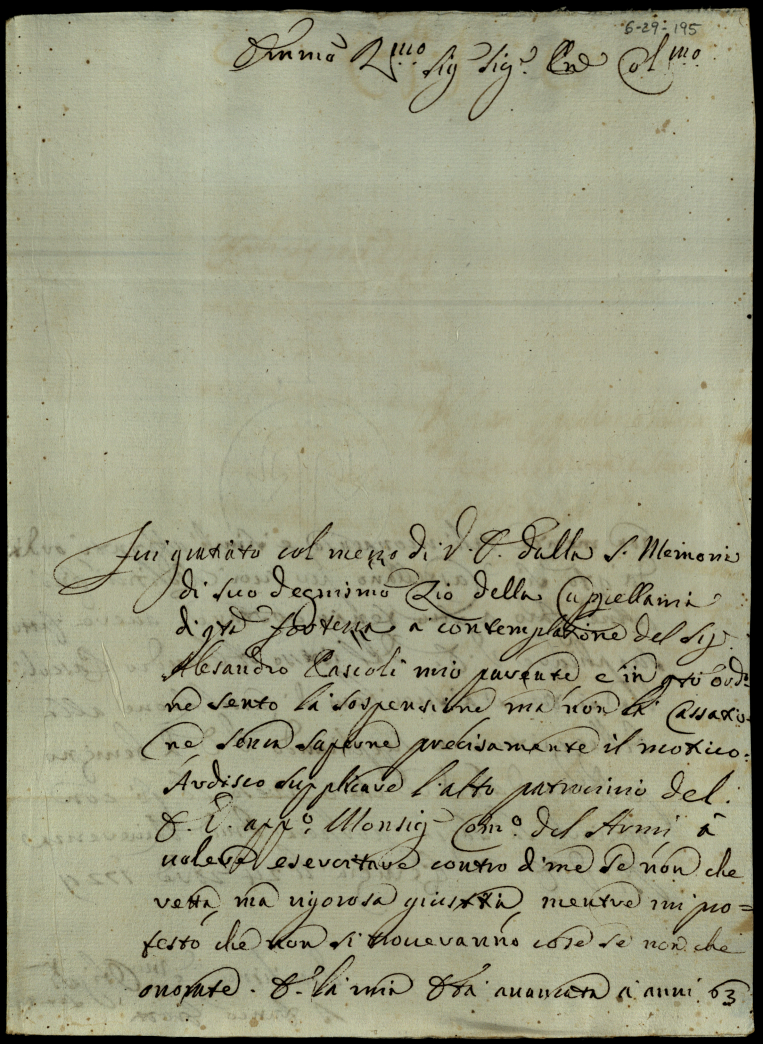 6-29-195
Emmo Rmo Sig Sigr. Pne Colmo
Fui gratiato col mezzo di V. E. dalla S. Memoria
di suo Degnismo Zio della Cappellania
di qta fortezza a contemplatione del Sigr.
Alesandro Pascoli mio parente, e in qto ordi-
ne sento la sospensione ma non la Cassatio-
ne senza saperne precisamente il motivo.
Ardisco supplicare l'alto patrocinio del
E. V. appo. Monsigr Como. del Armi à
volere esercitare contro di me se non che
retta, ma rigorosa giustitia, mentre mi pro=
festo, che non si troveranno cose se non che
onorate. E la mia Età avanzata a anni 63